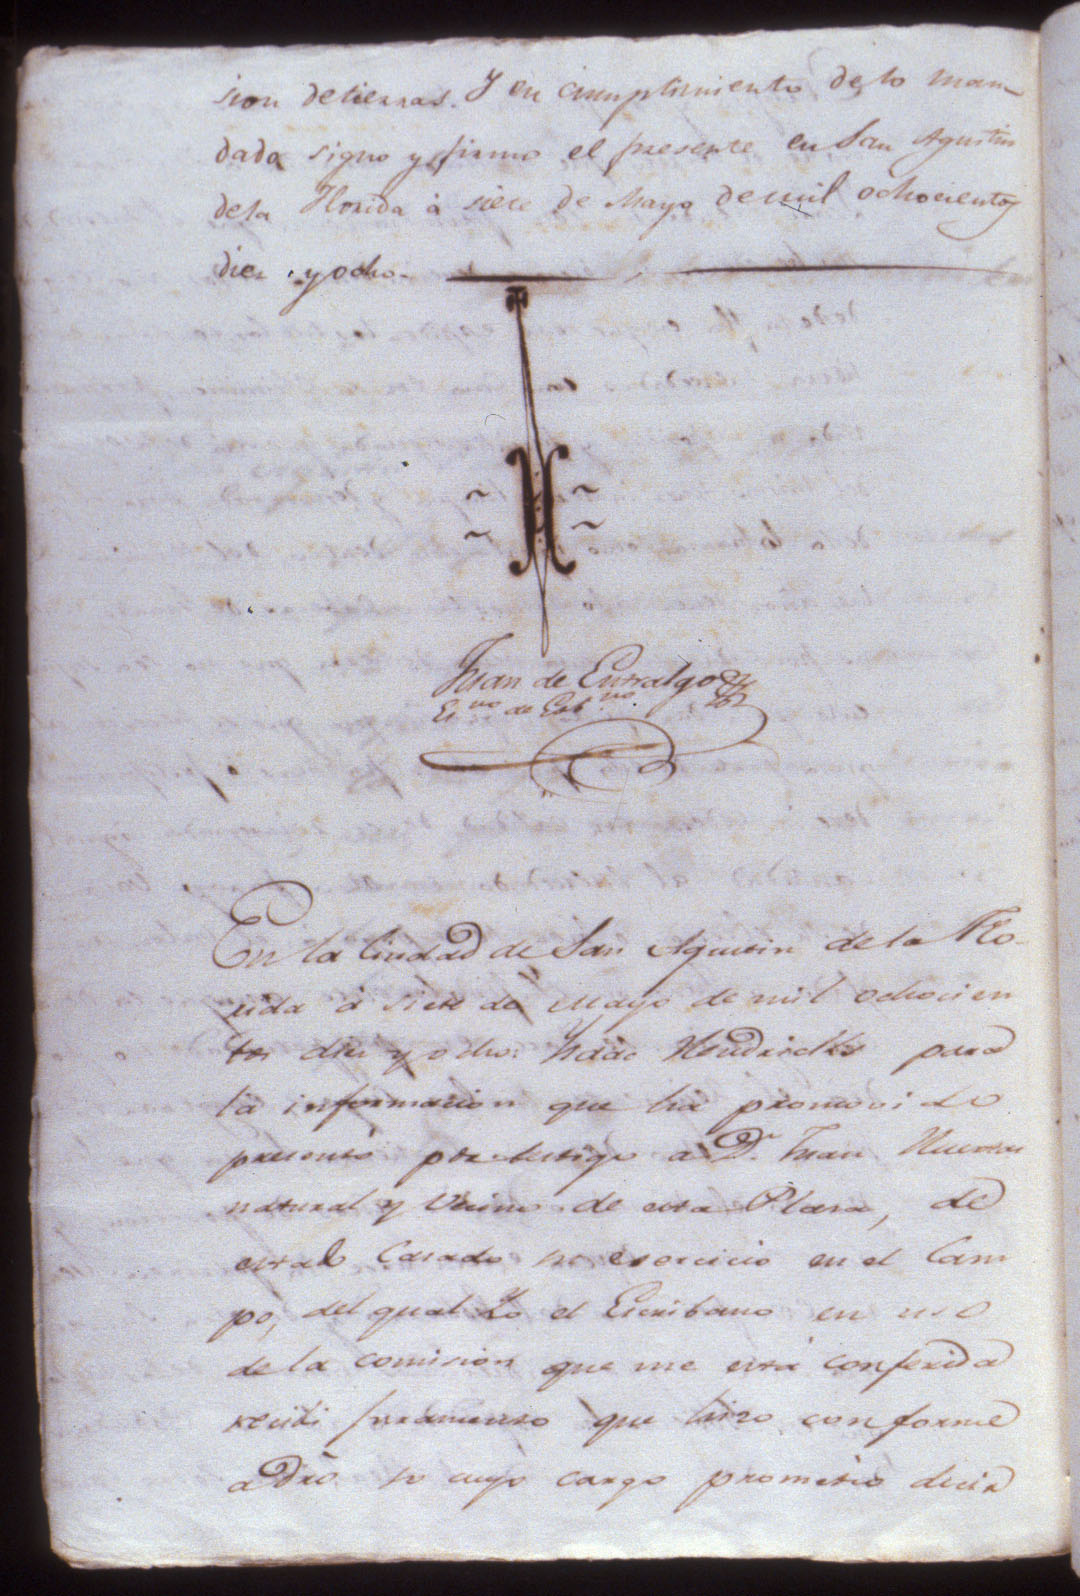 sion detierras. Y en cumplimiento delo man-
dado signo y firmo el presente en San Agustin
dela Florida á siete de Mayo demil ochocientos
diez y ocho.
Juan de Entralgo
Es.no de Gob.no
En la Ciudad de San Agustin de la Flo-
rida á siete de Mayo de mil ochocien
tos diez y ocho: Isaac Hendricks para
la informacion que ha promovido
presentó por testigo a D.n Juan Huertas
natural y Vecino de esta Plaza, de
estado Casado su exercicio en el Cam
po, del qual Yo el Escribano en uso
de la comision que me está conferida
recibi juramento que hizo conforme
a Dro. so cuyo cargo prometió decir